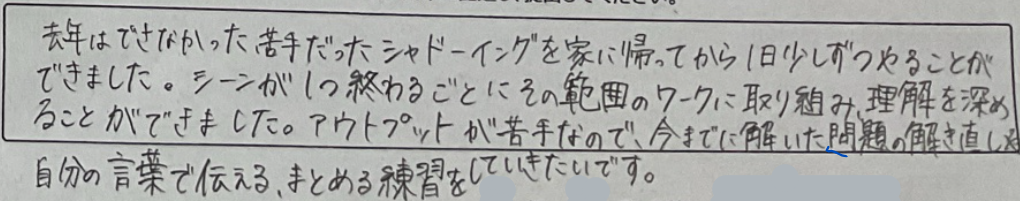 去年はできなかった苦手だったシャドーイングを家に帰ってから1日少しずつやることが
できました。シーンが1つ終わるごとにその範囲のワークに取り組み、理解を深め
ることができました。アウトプットが苦手なので、今までに解いた問題の解き直しや
自分の言葉で伝える、まとめる練習をしていきたいです。